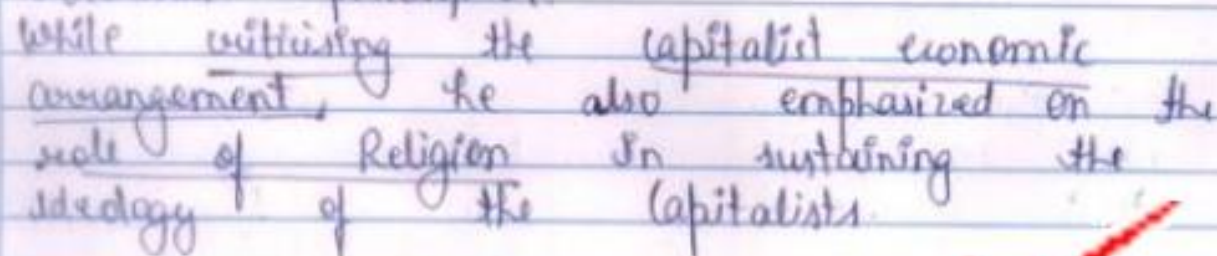 while criticising the capitalist economic
arrangement, he also emphasized on the
role of Religion in sustaining the
ideology of the Capitalists.